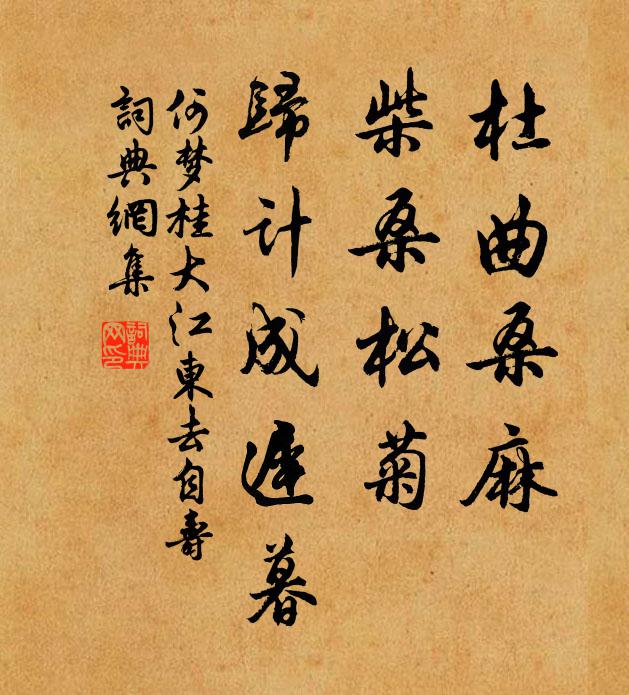 杜曲桑麻
柴桑松菊
歸计成遲暮
何梦桂大江東去自壽
詞典網集
詞典网印